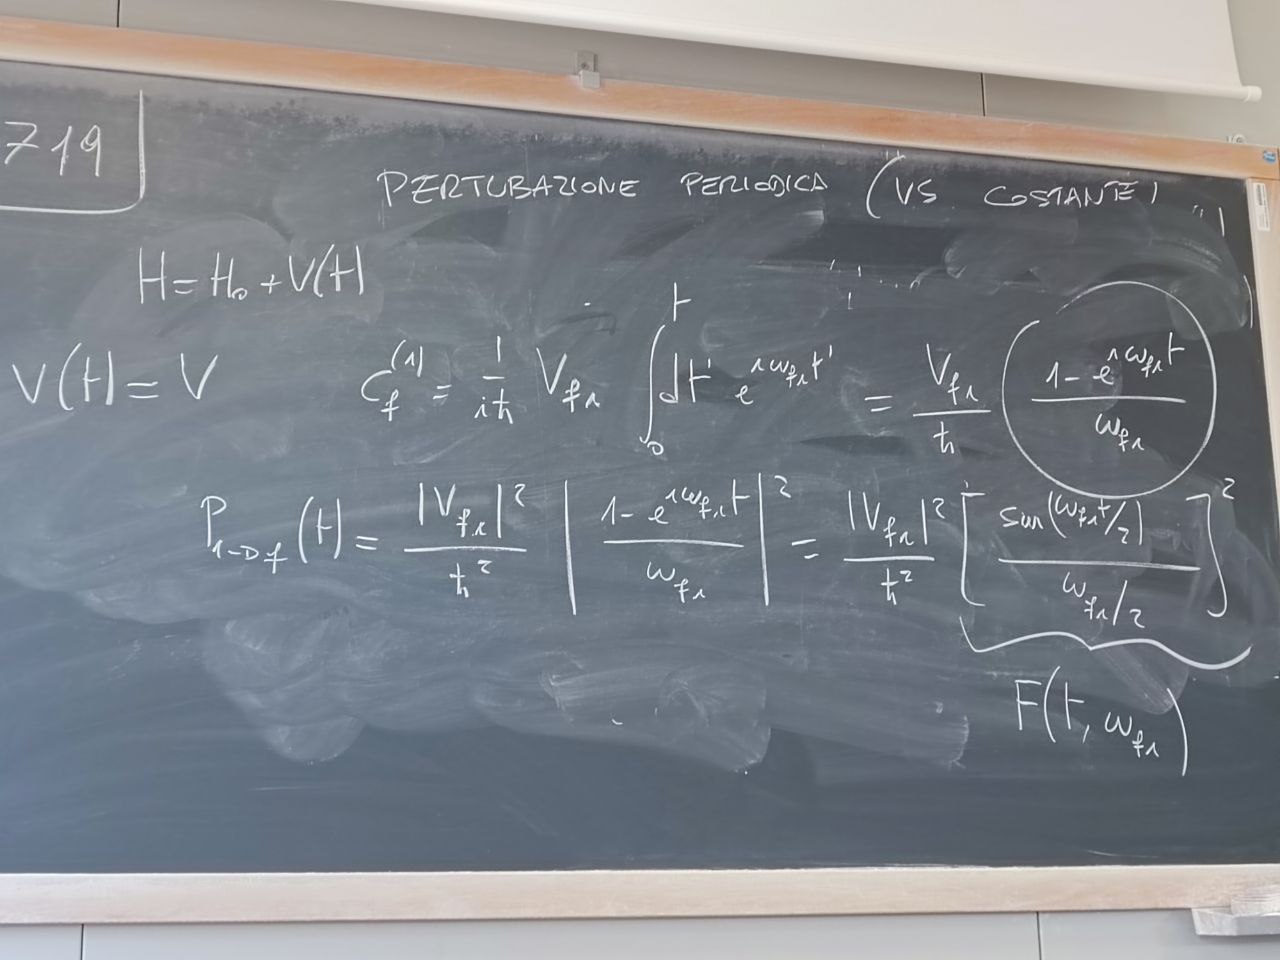 719
PERTUBAZIONE PERIODICA (VS COSTANTE)
H = H₀ + V(t)
V(t) = V
C_f^(1) = 1/iħ V_fi ∫₀^t dt' e^{iω_fi t'} = V_fi/ħ (1 - e^{iω_fi t})/ω_fi
P_{i→f}(t) = |V_fi|²/ħ² |(1 - e^{iω_fi t})/ω_fi|² = |V_fi|²/ħ² [sin(ω_fi t/2)/(ω_fi/2)]²
F(t, ω_fi)